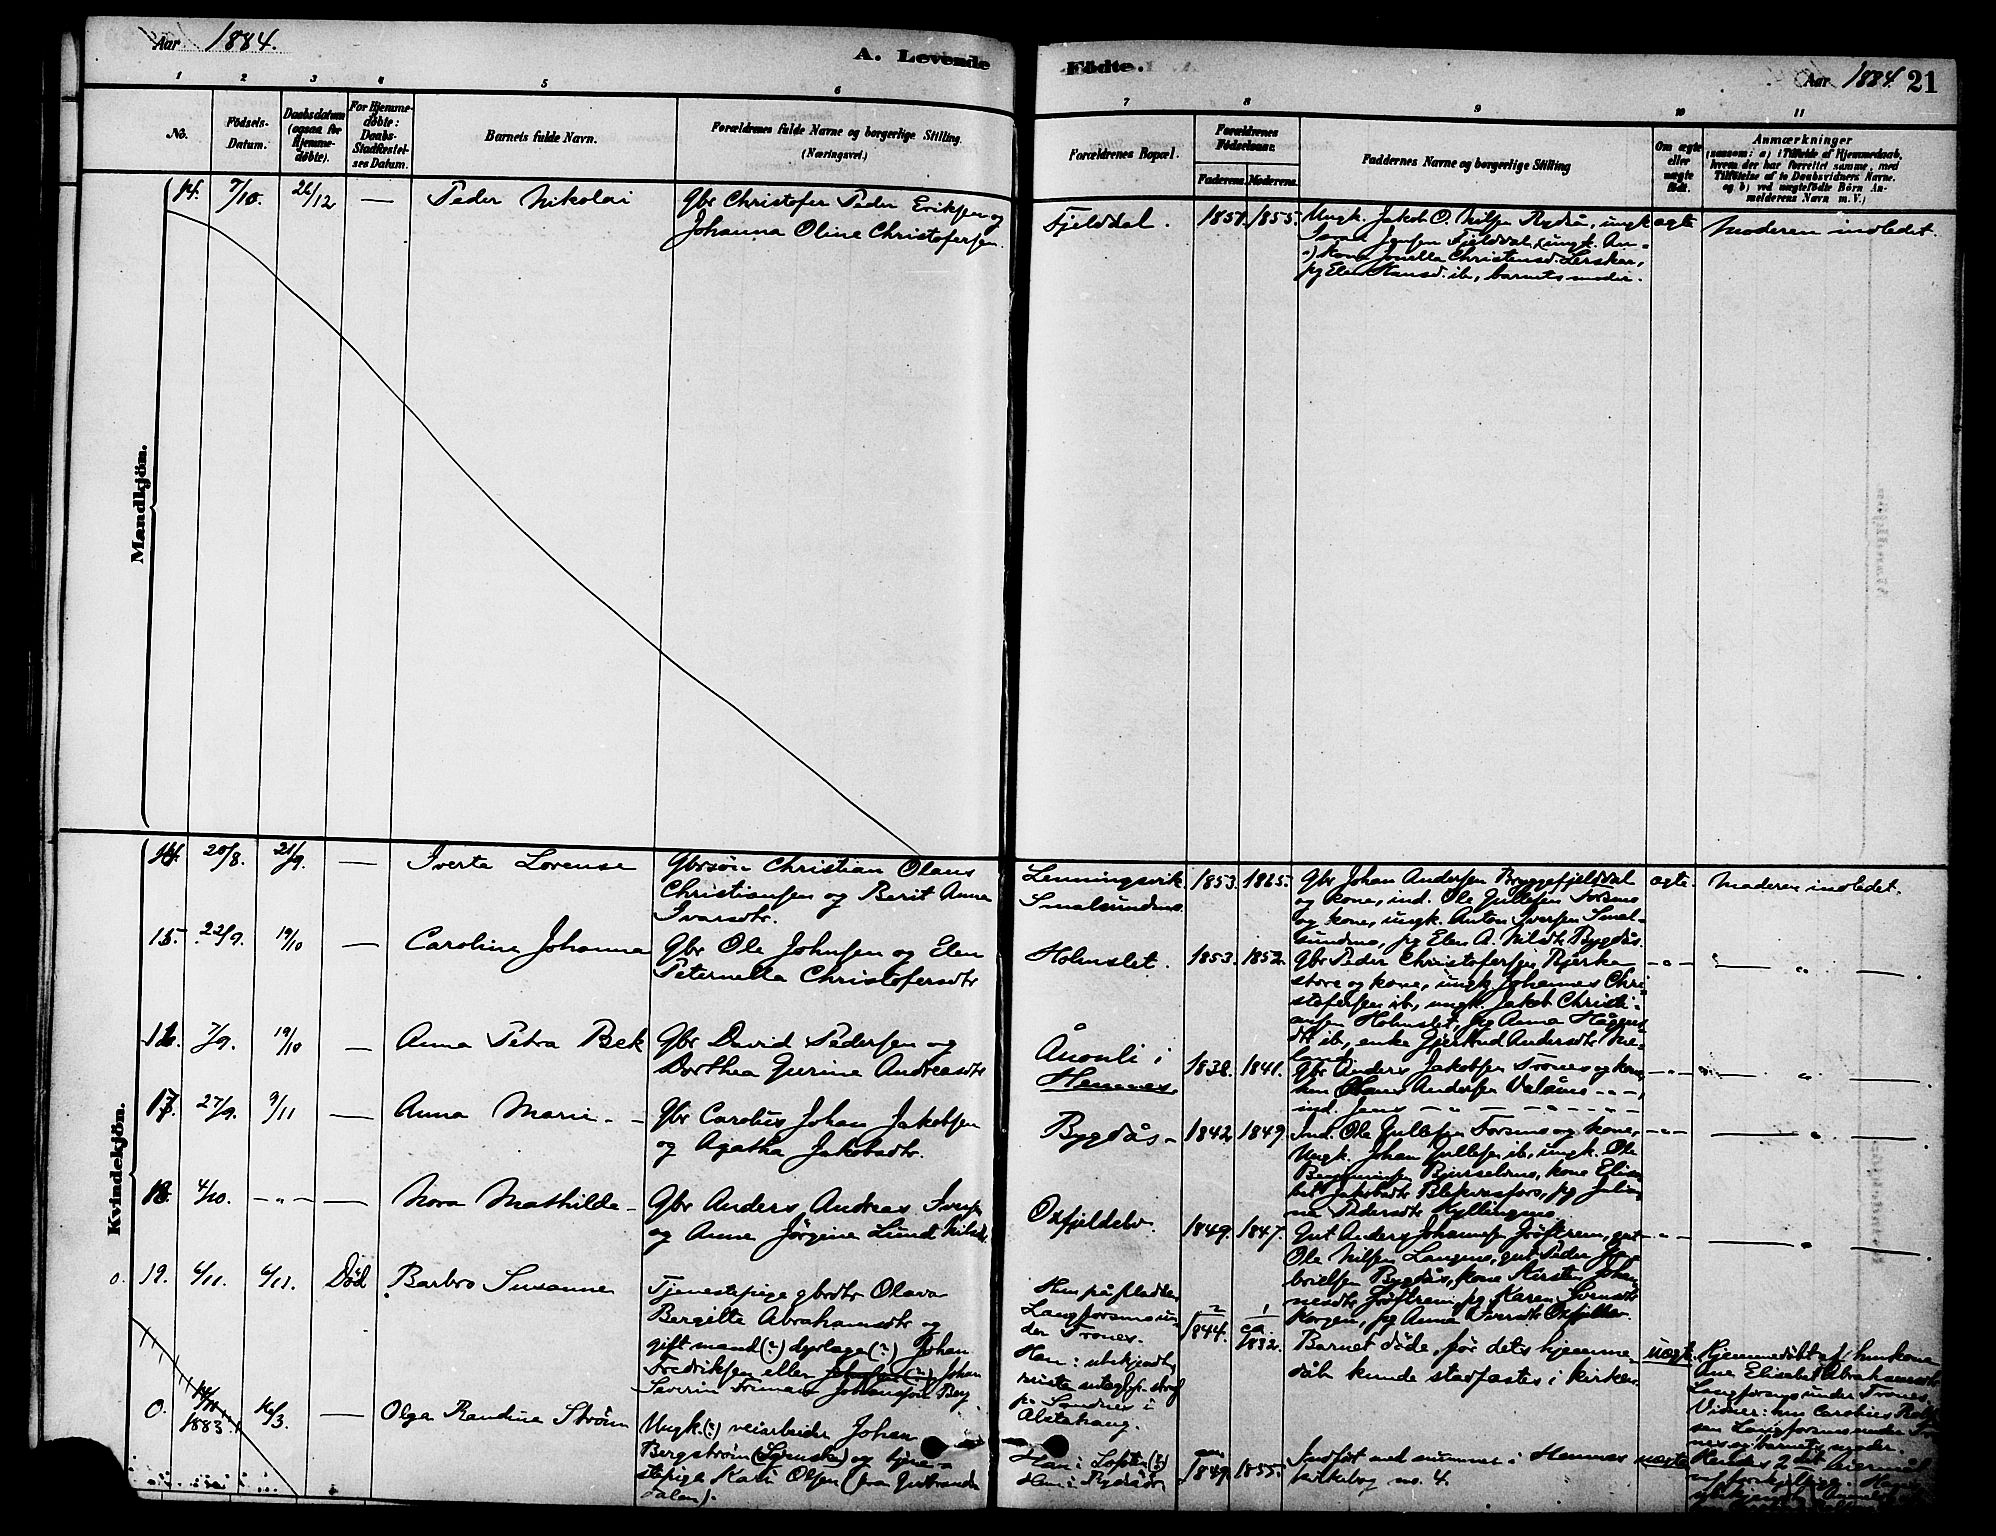 Aar 1884.
A. Levende Fødte.
Aar 1884 21
1 2 3 4 5 6 7 8 9 10 11
No.
Fødsels-Datum.
Daabsdatum (ogsaa for Hjemme-døbte).
For Hjemme-døbte: Daabs-Stadfæstel-ses Datum.
Barnets fulde Navn.
Forældrenes fulde Navne og borgerlige Stilling
(Næringsvei.)
Forældrenes Bopæl.
Forældrenes Fødselsaar.
Faderens. Moderens.
Faddernes Navne og borgerlige Stilling
Om ægte eller uægte født.
Anmærkninger
(saasom: a) i Tilfælde af Hjemmedaab,
hvem der har forrettet samme, med
Tilføielse af to Daabsvidners Navne,
og b) ved uægtefødte Børn An-
melderens Navn m. V.)
Mandkjön.
14. 7/10. 26/12 — Peder Nikolai
Gbr Christofer Peder Eriksen og
Johanna Oline Christofersen
Fjelddal. 1851. 1855.
Ungk. Jakob O. Nilsen Bygdås, ungk
Jensen Fjelddal, ungk. An-
) kone Jonella Christensd. Lerskar,
pg Elen Hansd. ib, barnets moder.
ægte
Moderen indledet.
Kvindekjön.
14. 20/8. 21/9. — Iverta Lorense
Gbrsøn Christian Olaus
Christiansen og Berit Anna
Ivarsdtr.
Lenningsvik
Smalsundmo
1853. 1865.
Gbr Johan Andersen Bryggefjelddal
og kone, ind. Ole Gullesen Forsmo
og kone, ungk. Anton Iversen Smal-
sundmo, pg Elen A. Nilsdtr Bygdås.
ægte.
Moderen indledet.
15. 22/9. 19/10 — Caroline Johanna
Gbr Ole Johnsen og Elen
Peternella Christofersdtr
Holmslet. 1853. 1852.
Gbr Peder Christofersen Bjerka
store og kone, ungk Johannes Chri-
stofersen ib, ungk. Jakob Christi-
ansen Holmslet, pg Anna
dtr ib, enke Gjertrud Andersdtr
— " — — " —
16. 7/9. 19/10 — Anna Petra Bek
Gbr David Pedersen og
Dorthea Gurine Andreasdtr
Ånonli i
Hemnes
1838. 1841.
Gbr Anders Jakobsen Trones og kone,
hm Olaus Andersen Valåmo — " —,
ind. Jens — " — " —
— " — — " —
17. 27/9. 9/11 — Anna Marie —
Gbr Carolus Johan Jakobsen
og Agatha Jakobsdtr.
Bygdås — 1842 1849.
Ind. Ole Gullesen Forsmo og kone,
Ungk. Johan Gullesen ib, ungk. Ole
Benjaminsen Bjurselvmo, kone Elisa-
bet Jakobsdtr Blekvasfors, pg Julian-
ne Pedersdtr Kyllingmo.
— " — — " —
18. 4/10. — " — — Nora Mathilde —
Gbr Anders Andreas Iversen
og Anne Jørgine Lund Nilsdtr
Oxfjeldelv. 1849. 1847.
Gut Anders Johansen Jrøftrem, gut
Ole Nilsen Langmo, gut Peder
brielsen Bygdås, kone Kirsten Johan-
nesdtr Jrøftrem, pg Karen Svensdtr
Korgen, pg Anna Oxfjeldelv.
— " — — " —
0. 19. 6/11. 6/11. Død Barbro Susanne
Tjenestepige gbrdtr Olava
Bergitte Abrahamsdtr og
gift mand (?) dyrlæge (?) Johan
Fredriksen eller Johan
Severin Johansson Berg
Hun på pladsen
Langforsmo un-
der Trones.
Han: ubekjendt,
Sandnes i
Alstahaug.
1844. ca. 1832.
Barnet døde, før dets hjemme-
dåb kunde stadfæstes i kirken.
uægte.
Hjemmedøbt af huskone
Ane Elisabet Abrahamsdtr
Langforsmo under Trones
Vidner: hm Carolius
sen Langforsmo under Tro-
nes og barnets moder.
0. 1883. 16/3. — Olga Randine Strøm
Ungk. (?) veiarbeider Johan
Bergstrøm (Svenske) og tjene-
stepige Kari Olsen (fra Gudbrands-
dalen).
Han i Lofoten (?)
Hun i Bygdås
1849. 1855.
Indført med nummer i Hemnes
kirkebog no. 4.
uægte
Hendes 2det leiermål